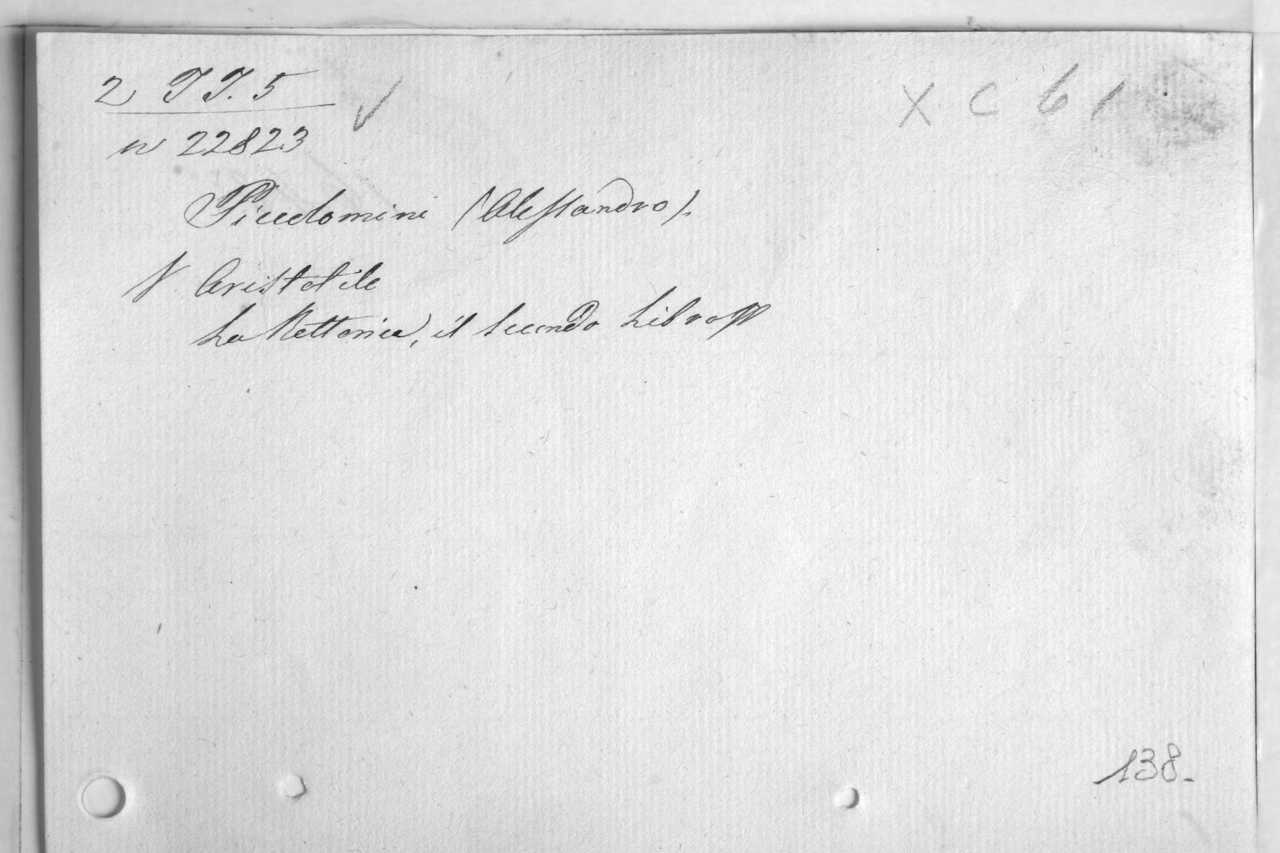 2 TT. 5
X C 6 1
n 22823
Piccolomini (Alessandro).
V Aristotile
La Rettorica, il secondo Libro
138.